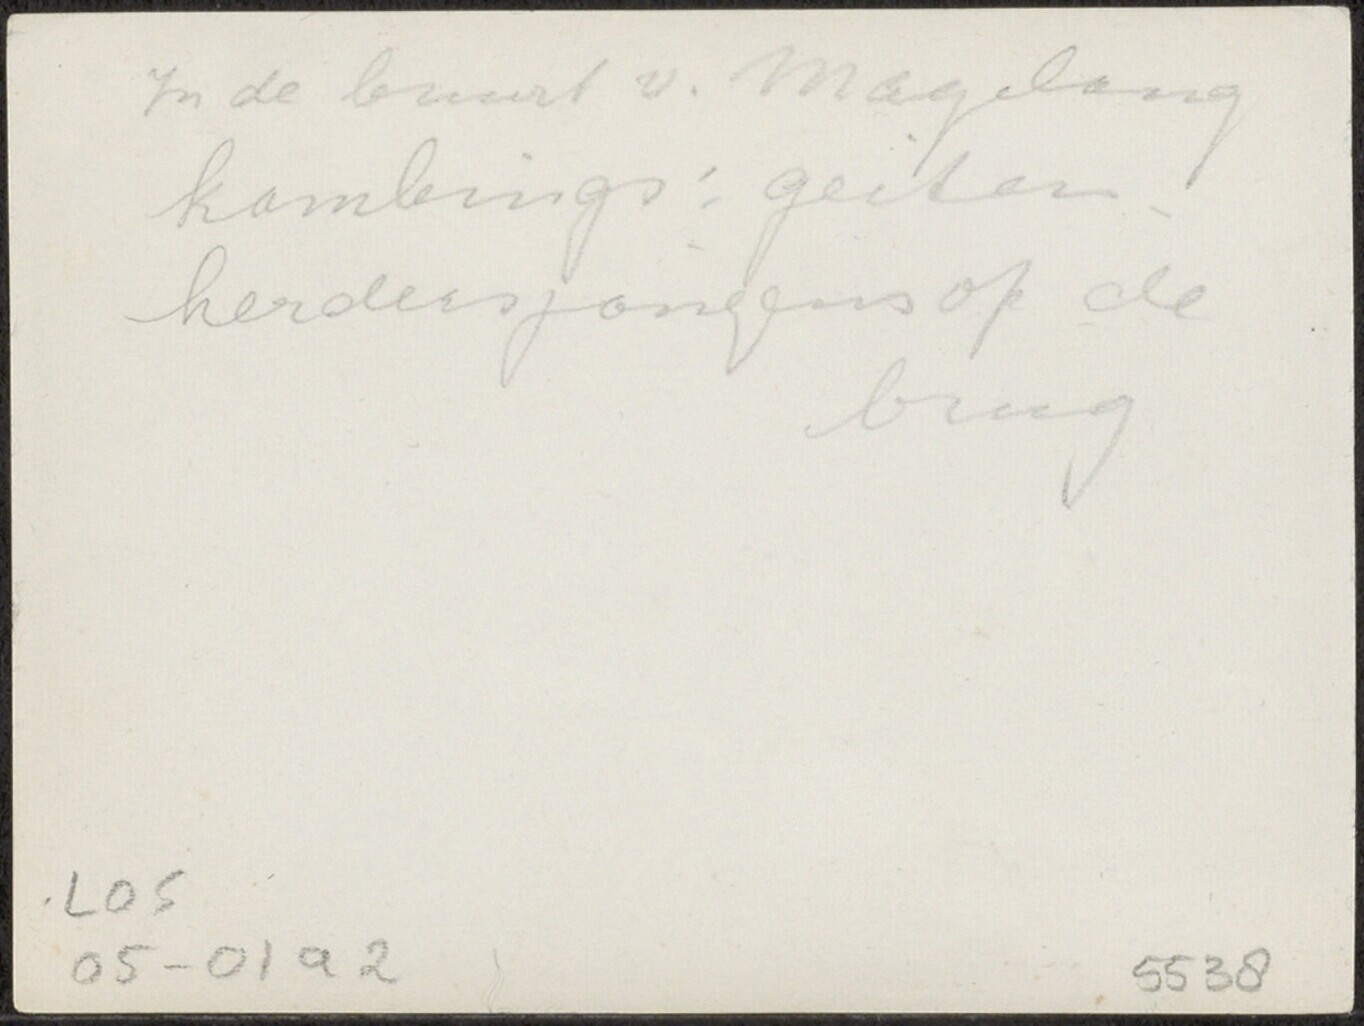 In de buurt v. Magelang
kambings: geiten
herdersjongens op de
brug
LOS
05-01a2
5538